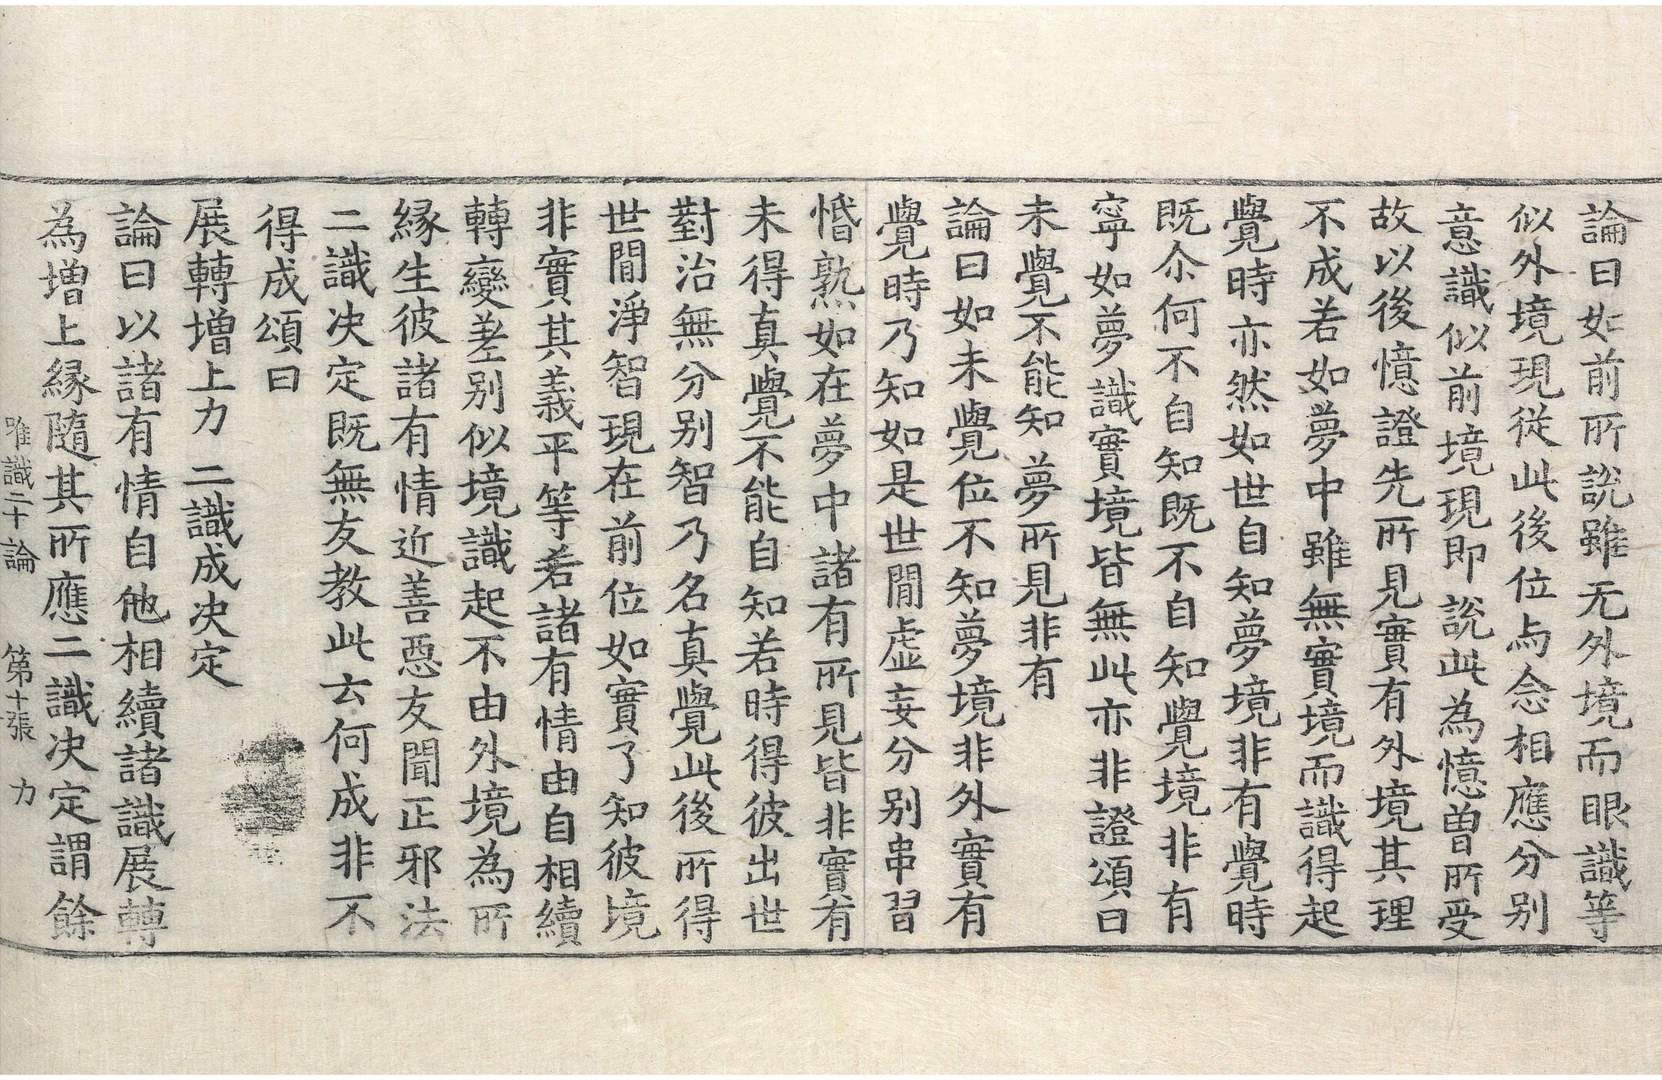 論曰如前所説雖无外境而眼識等
似外境現從此後位与念相應分别
意識似前境現即説此為憶曽所受
故以後憶證先所見實有外境其理
不成若如夢中雖無實境而識得起
覺時亦然如世自知夢境非有覺時
既尒何不自知既不自知覺境非有
寧如夢識實境皆無此亦非證頌曰
未覺不能知夢所見非有
論曰如未覺位不知夢境非外實有
覺時乃知如是世間虛妄分别串習
惛熟如在夢中諸有所見皆非實有
未得真覺不能自知若時得彼出世
對治無分别智乃名真覺此後所得
世間淨智現在前位如實了知彼境
非實其義平等若諸有情由自相續
轉變差别似境識起不由外境為所
緣生彼諸有情近善惡友聞正邪法
二識决定既無友教此云何成非不
得成頌曰
展轉增上力 二識成决定
論曰以諸有情自他相續諸識展轉
為增上緣隨其所應二識决定謂餘
唯識二十論 第十張 力